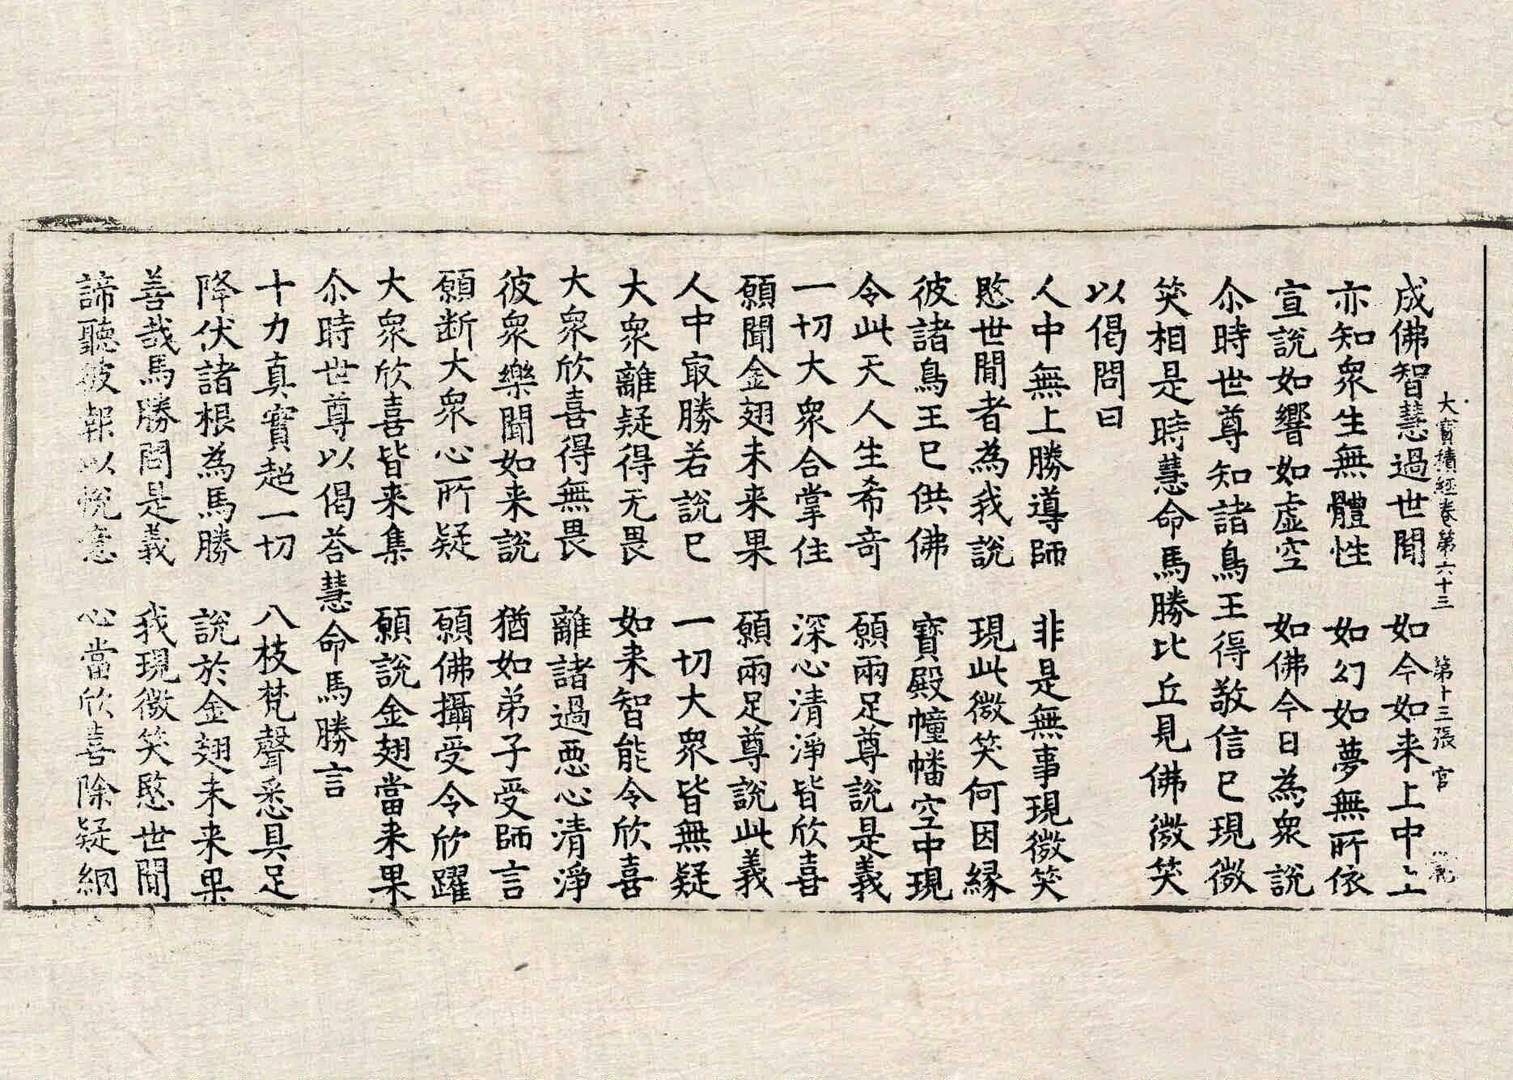 大寶積經卷第六十三 第十三張 官
成佛智慧過世閒 如今如来上中上
亦知衆生無體性 如幻如夢無所依
宣說如響如虛空 如佛今日為衆說
尒時世尊知諸鳥王得敬信已現微
笑相是時慧命馬勝比丘見佛微笑
以偈問曰
人中無上勝導師 非是無事現微笑
愍世閒者為我說 現此微笑何因緣
彼諸鳥王已供佛 寶殿幢幡空中現
令此天人生希奇 願兩足尊說是義
一切大衆合掌住 深心清淨皆欣喜
願聞金翅未来果 願兩足尊說此義
人中㝡勝若說已 一切大衆皆無疑
大衆離疑得无畏 如来智能令欣喜
大衆欣喜得無畏 離諸過惡心清淨
彼衆樂聞如来說 猶如弟子受師言
願断大衆心所疑 願佛攝受令欣躍
大衆欣喜皆来集 願說金翅當来果
尒時世尊以偈荅慧命馬勝言
十力真實超一切 八枝梵聲悉具足
降伏諸根為馬勝 說於金翅未来果
善哉馬勝問是義 我現微笑愍世閒
諦聽彼報以悅意 心當欣喜除疑網